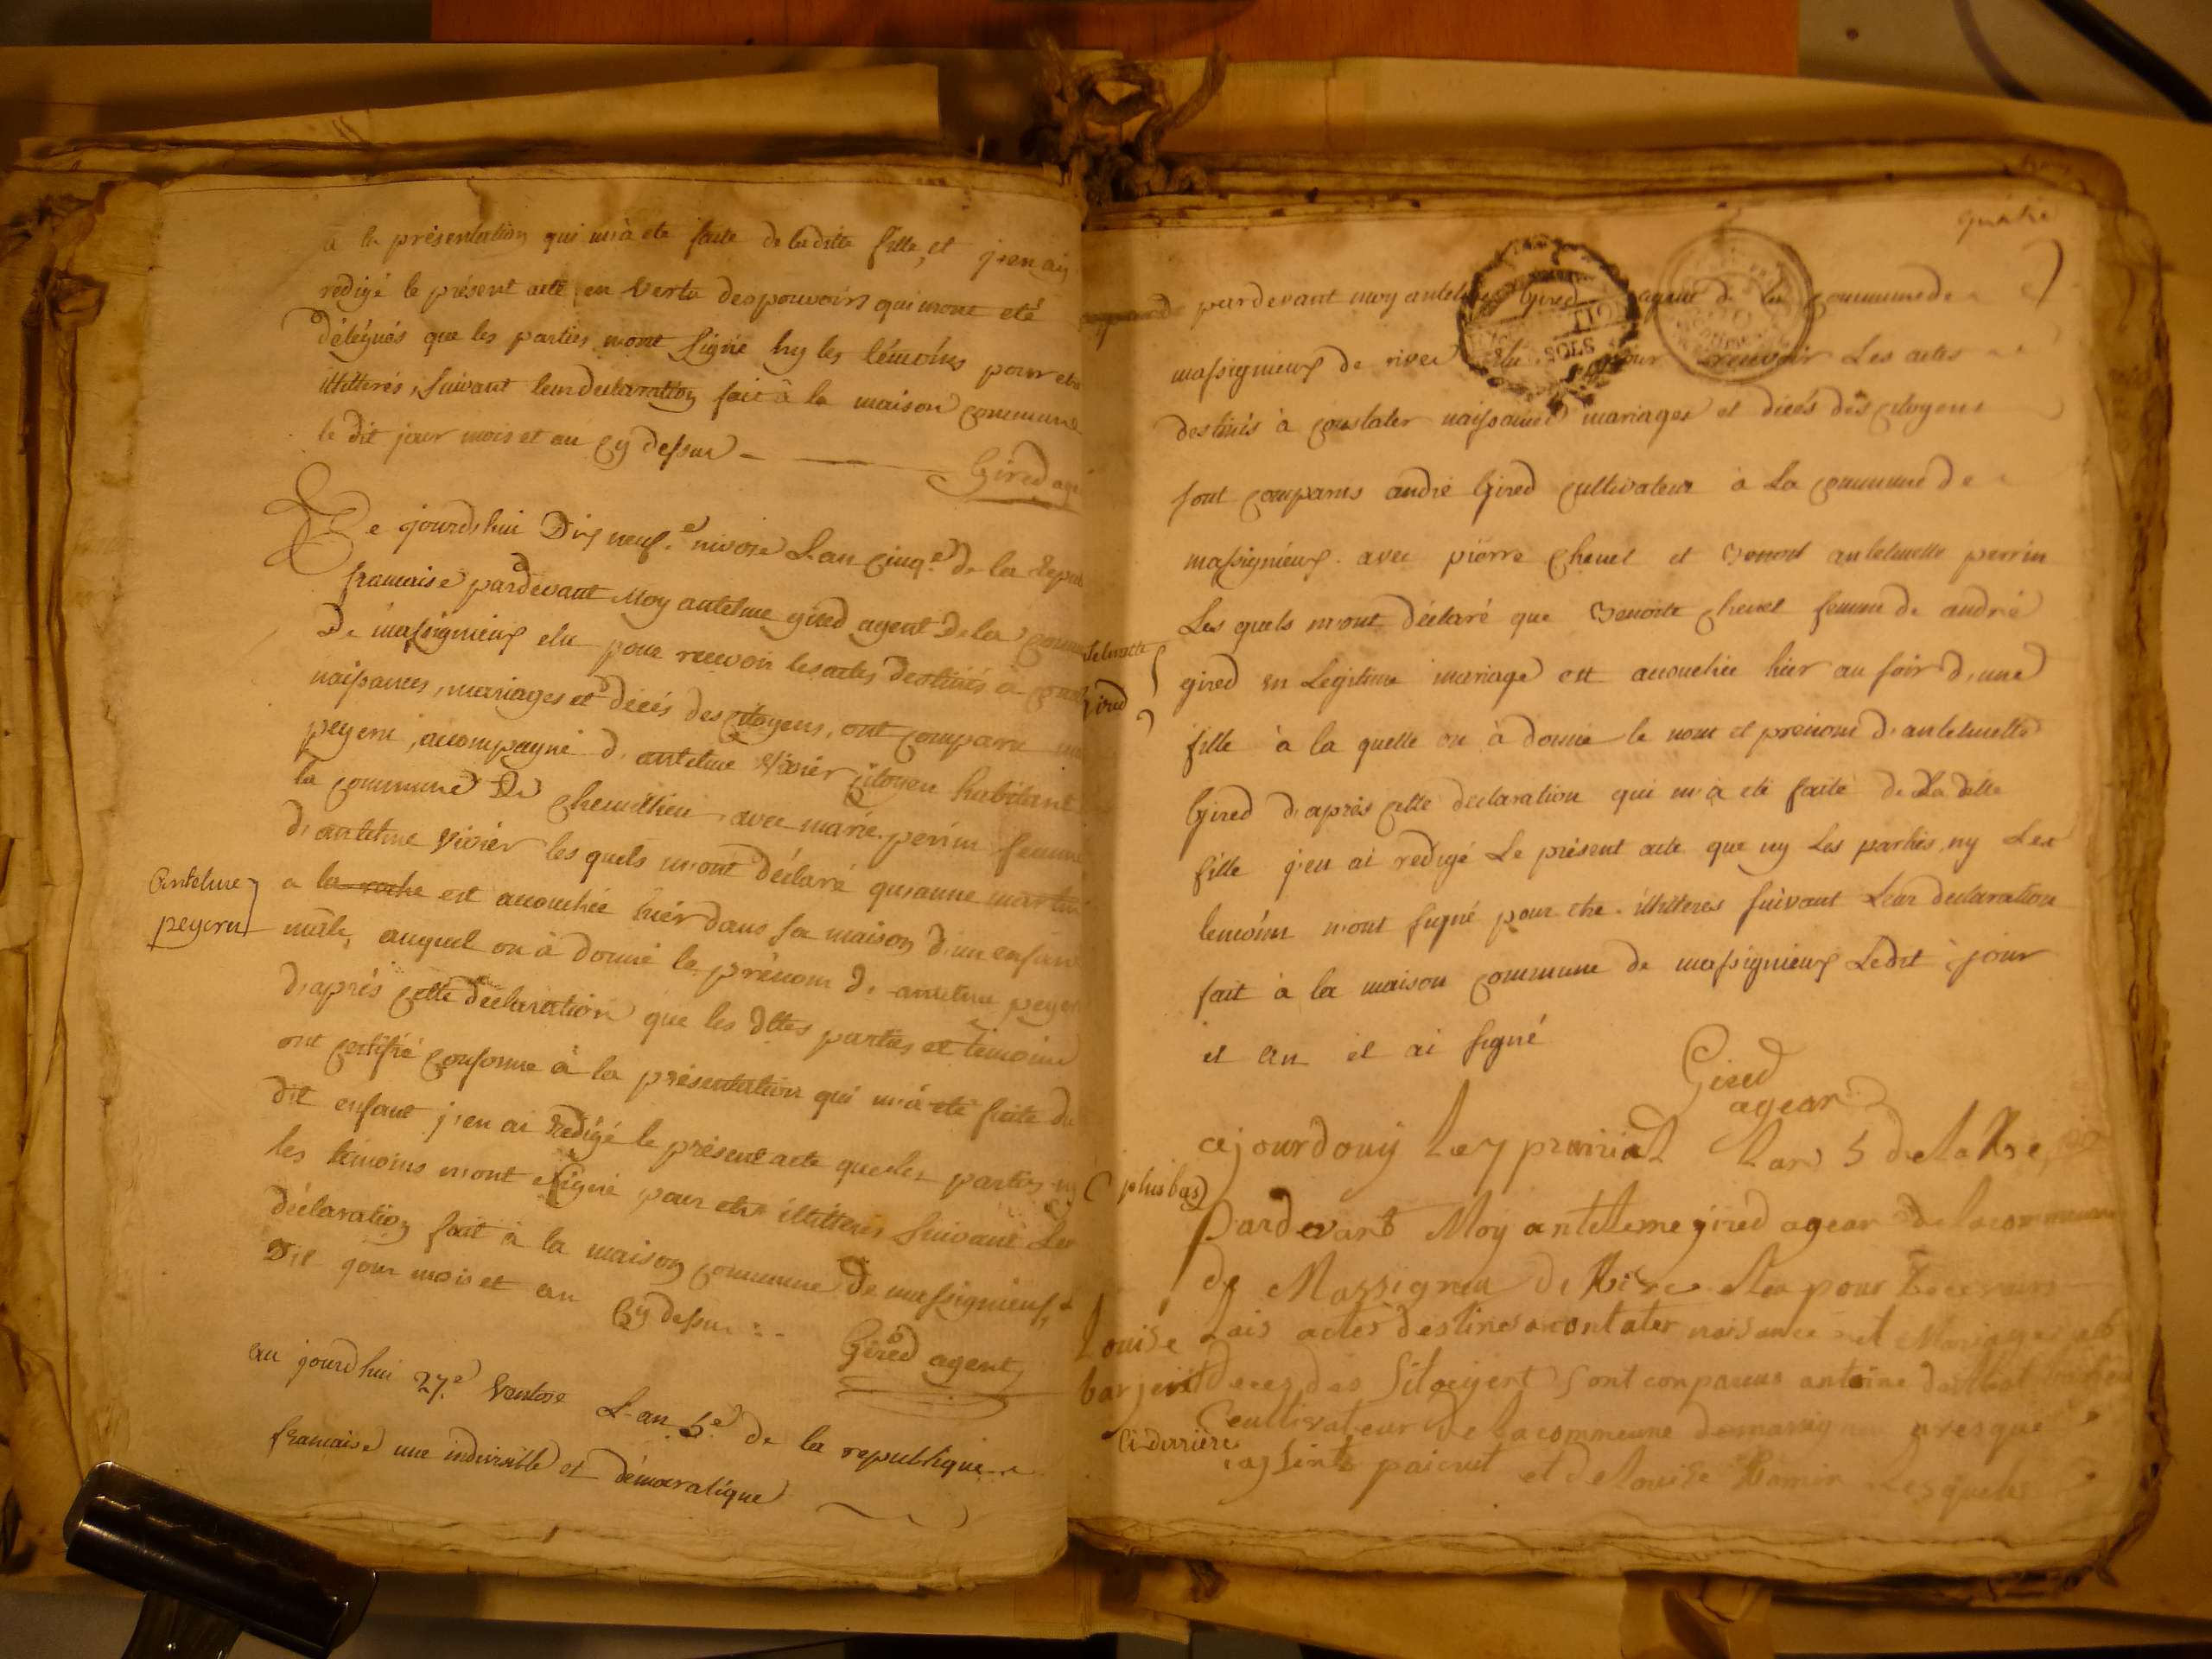 a la présentation qui m'a été faite de laditte fille, et j'en ai
redigé le présent acte en vertu des pouvoirs qui m'ont eté
délégués que les parties n'ont signé ny les témoins pour etre
illitterés, suivant leur declaration fait à la maison commune
le dit jour mois et an cy dessus
Gired agt
Ce jourdhui Dix neuf.e nivose L'an cinq.e de la Repu
francaise pardevant Moy antelme gired agent De la comm
De massignieux elu pour recevoir les actes destinés à const
naissances, mariages et décés des citoyens, ont comparu
peyern, acompagné d'antelme Vivier citoyen habitant
la commune de chemillieu, avec marie perrin femme
d'antelme Vivier les quels m'ont déclaré qu'anne martin
a la roche est acouchée hiér dans sa maison d'un enfan
Antelme
peyern
mâle, auquel on à donné le prénom d'antelme peyer
d'aprés cette déclaration que les dttes parties et témoins
ont certifié conforme à la présentation qui m'à été faite du
dit enfant j'en ai redigé le présent acte que les parties ny
les témoins n'ont signé pour etre illitterés suivant Leur
déclaration fait à la maison commune de massignieux Le
Dit jour mois et an cy dessus
Gired agent
au jourdhui 27.e Ventose L'an 5.e de la republique
francaise une indivisible et démocratique
quatre
pardevant moy antelme Gired agent de la commune de
massignieux de rives elu pour recevoir Les actes
destinés à constater naissances mariages et décés des citoyens
sont comparus andré Gired cultivateur à La commune de
massignieux avec pierre chevet et antelmette perrin
Les quels m'ont déclaré que Benoite chevet femme de andré
telmette
gired
gired en Legitime mariage est acouchée hier au soir d'une
fille à la quelle on à donné le nom et prenom d'antelmette
Gired d'après cette declaration qui m'a eté faite de La ditte
fille j'en ai redigé Le présent acte que ny Les parties, ny Les
temoins n'ont signé pour etre illitteres suivant Leur declaration
fait à la maison commune de massignieux Ledit jour
et an et ai signé
Gired
agean
ajourdouy Le 7 prairial Lan 5 de la
(plus bas)
Pardevant Moy antelleme gired agean de la commune
de Massigneu de Rive elu pour
Louise
barjeut
Lais actes destines a contater naisance et Mariages et
deces des Sitoeyent sont conparus antoine
Ceultivateur de la commeune de avesque
Ci-derrière
et de Louise Lesquels